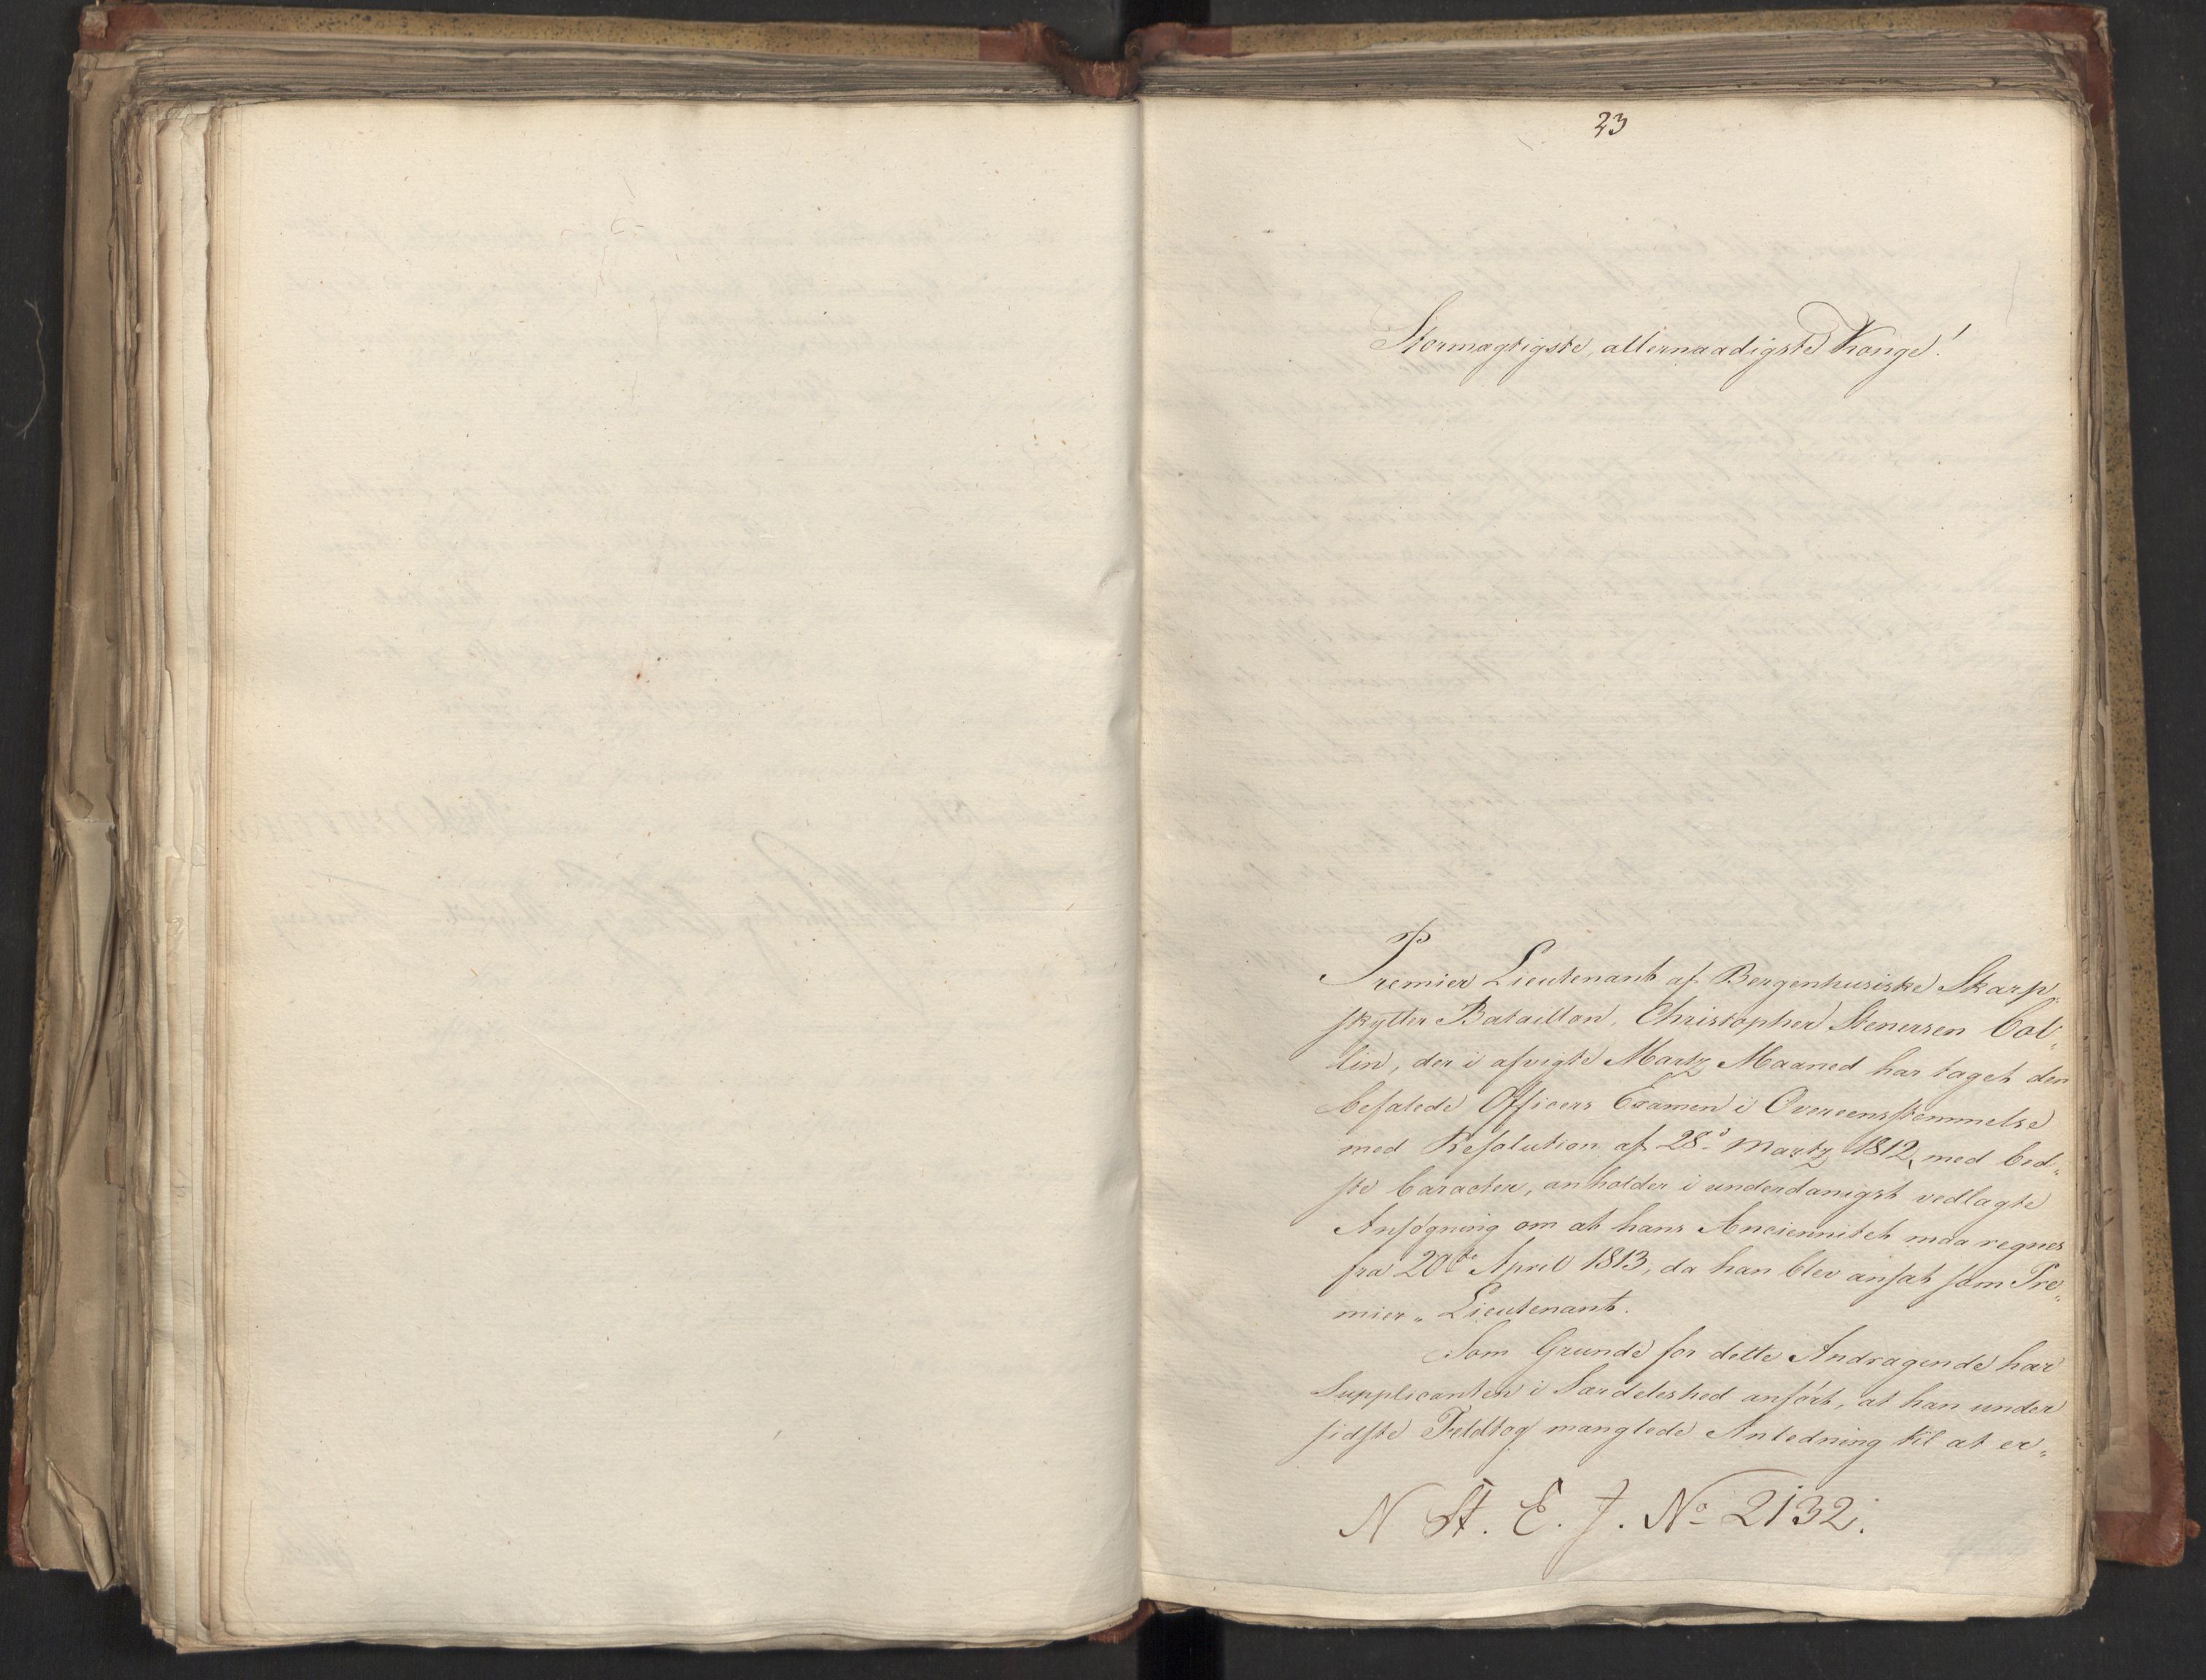 23
Stormægtigste, allernaadigste Konge!
Premier Lieutenant af Bergenhusiske Skarp„
skytter Bataillon, Christopher Stenersen Col„
lin, der i afvigte Martz Maaned har taget den
befalede Officeers Examen i Overeensstemmelse
med Resolution af 28d Martz 1812, med bed„
ste Caracter, anholder i underdanigst vedlagte
Ansøgning om at hans Anciennitet maa regnes
fra 20de April 1813, da han blev ansat som Pre„
mier„Lieutenant.
Som Grunde for dette Andragende har
Supplicanten i Særdeleshed anført, at han under
sidste Feldtog manglede Anledning til at er„
N St. E. J. No 2132.